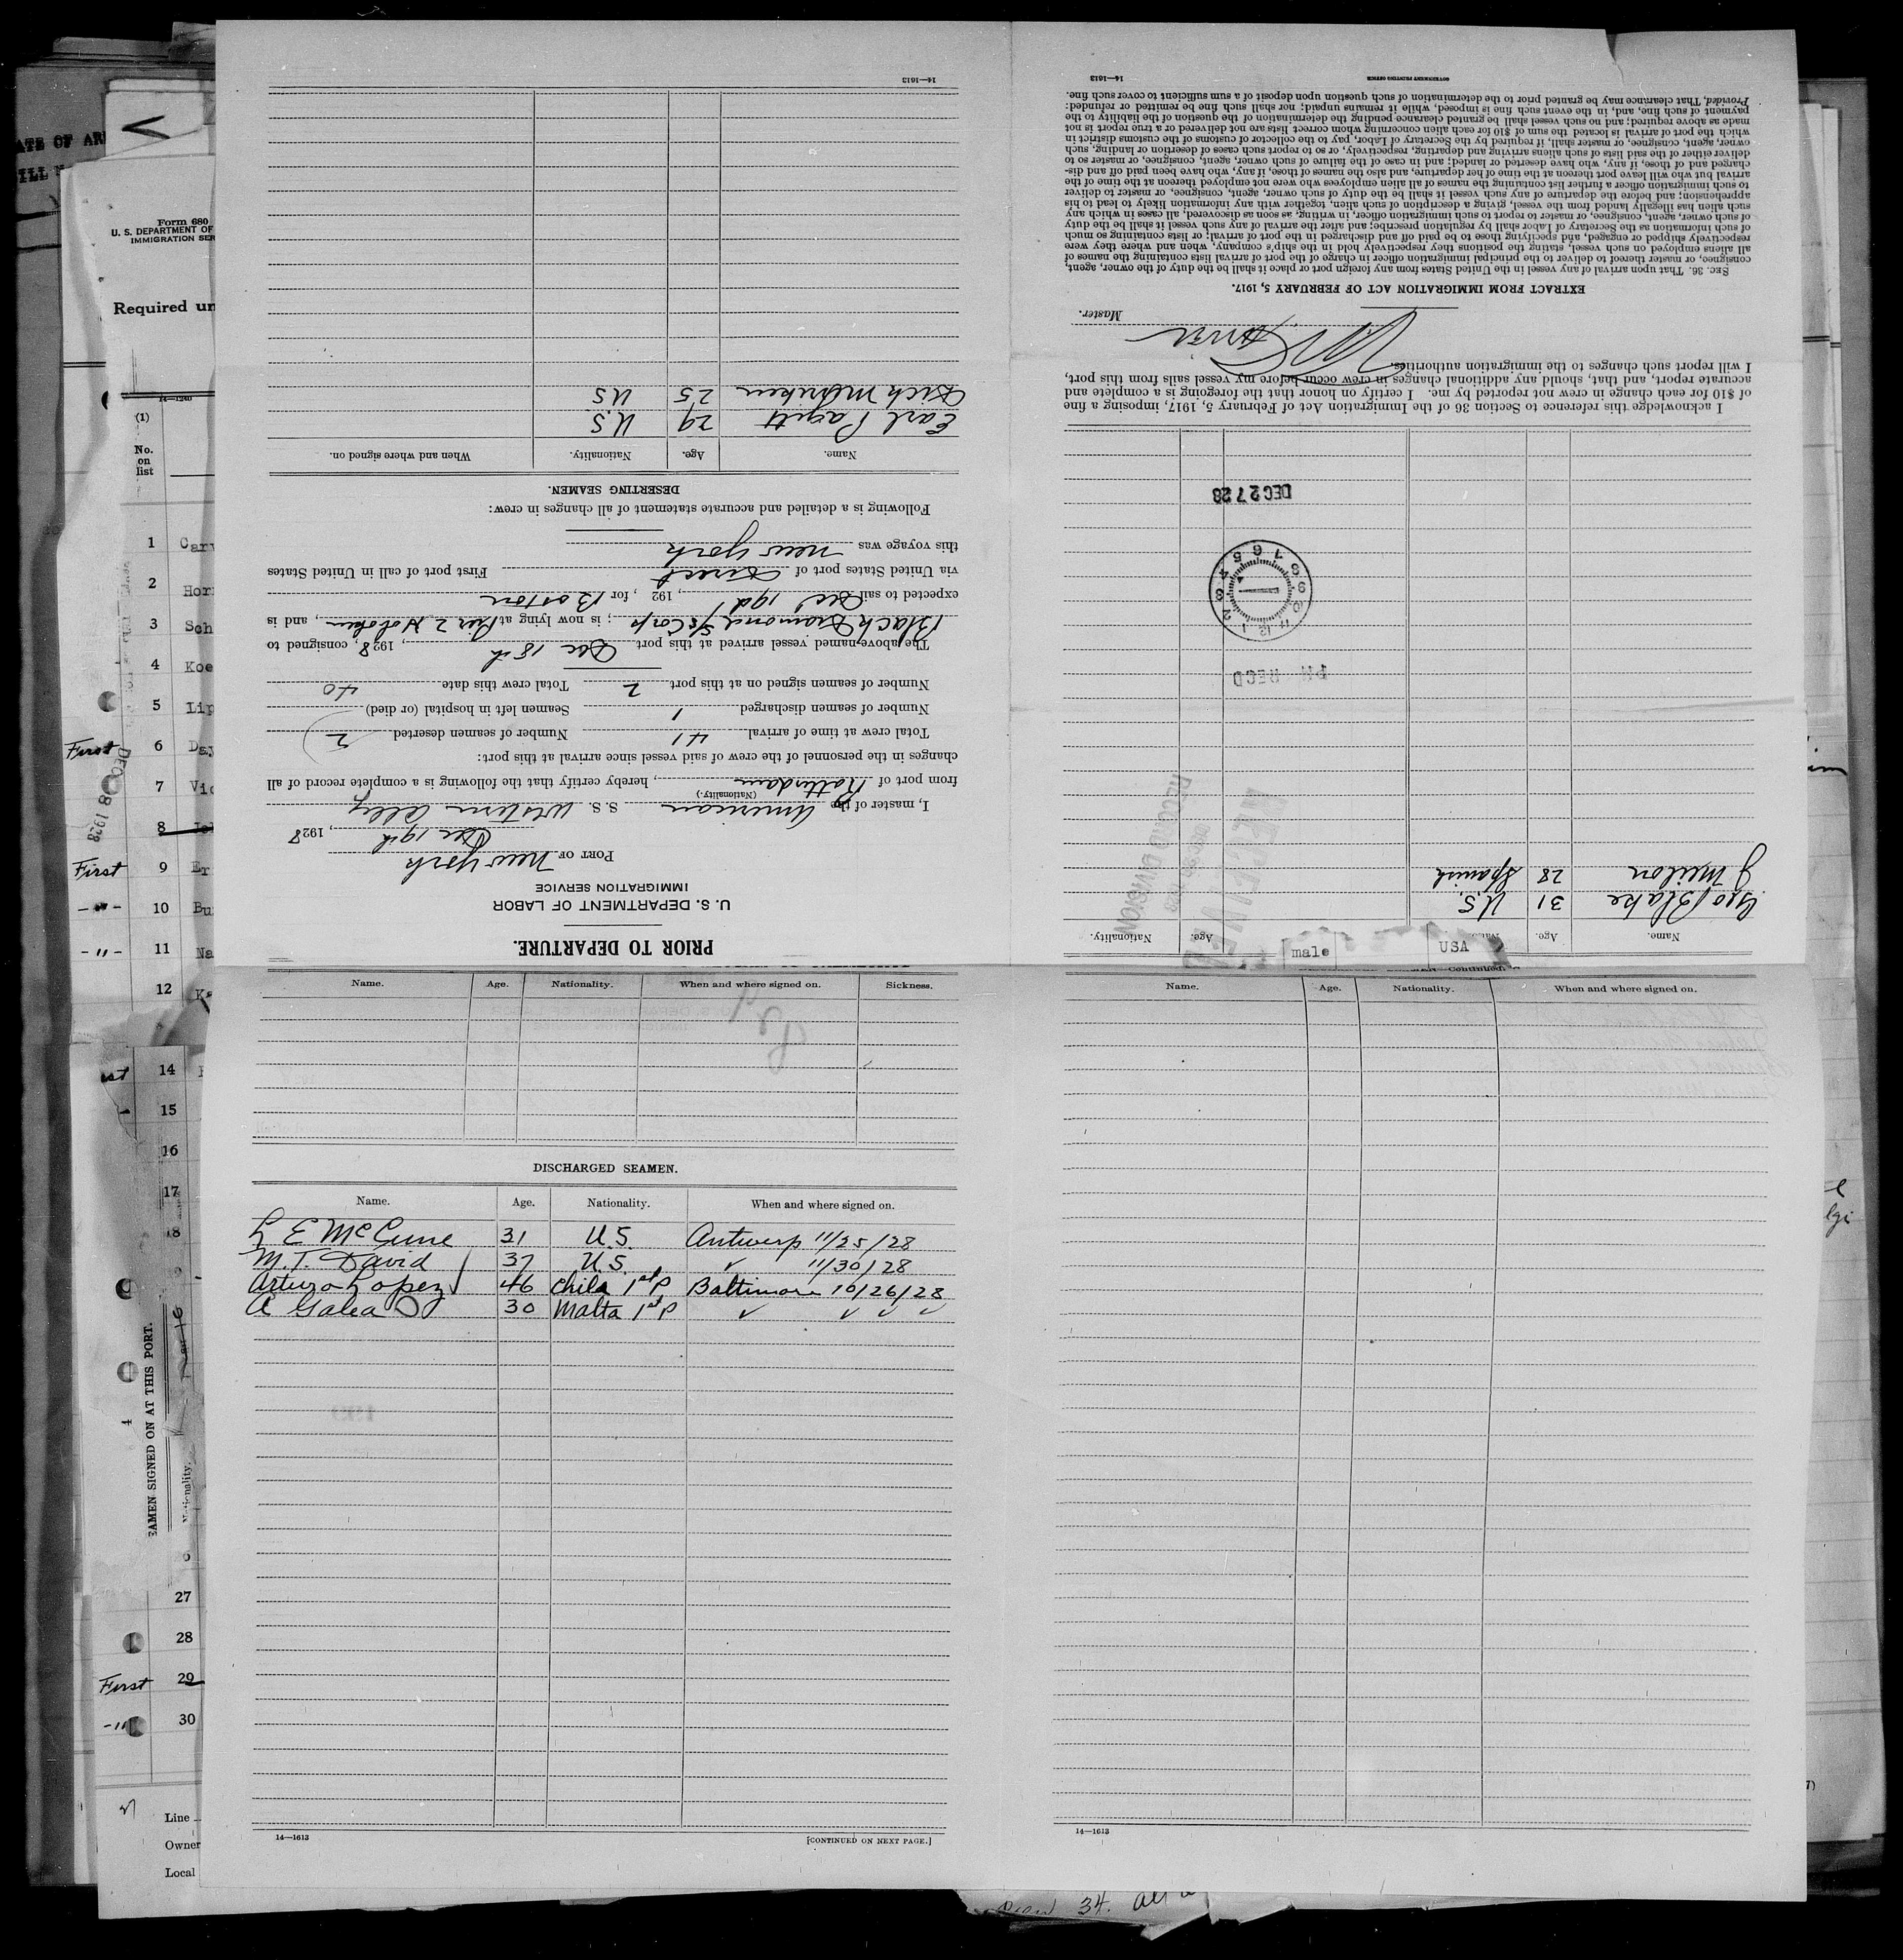 14—1613
PRIOR TO DEPARTURE.
U. S. DEPARTMENT OF LABOR
IMMIGRATION SERVICE
PORT OF New York
Dec 19th, 1928
I, master of the American S. S. Western Ally
(Nationality.)
from port of Rotterdam, hereby certify that the following is a complete record of all
changes in the personnel of the crew of said vessel since arrival at this port:
Total crew at time of arrival 41 Number of seamen deserted 2
Number of seamen discharged 1 Seamen left in hospital (or died)
Number of seamen signed on at this port 2 Total crew this date 40
The above-named vessel arrived at this port Dec 18th, 1928, consigned to
Black Diamond S/S Corp; is now lying at Pier 2 Hoboken, and is
expected to sail Dec 19th, 192 , for Boston
via United States port of Direct First port of call in United States
this voyage was New York
Following is a detailed and accurate statement of all changes in crew:
DESERTING SEAMEN.
Name. Age. Nationality. When and where signed on.
Earl 29 U.S.
25 US
14—1613
Name. Age. Nationality. Name. Age. Nationality.
Geo Blake 31 U.S.
J 28 Spanish
male USA
RECEIVED
RECORD DIVISION
PM RECD
12 1 2 3 4 5 6 7 8 9 10 11
DEC 27 28
I acknowledge this reference to Section 36 of the Immigration Act of February 5, 1917, imposing a fine
of $10 for each change in crew not reported by me. I certify on honor that the foregoing is a complete and
accurate report, and that, should any additional changes in crew occur before my vessel sails from this port,
I will report such changes to the immigration authorities.
Master.
EXTRACT FROM IMMIGRATION ACT OF FEBRUARY 5, 1917.
SEC. 36. That upon arrival of any vessel in the United States from any foreign port or place it shall be the duty of the owner, agent,
consignee, or master thereof to deliver to the principal immigration officer in charge of the port of arrival lists containing the names of
all aliens employed on such vessel, stating the positions they respectively hold in the ship's company, when and where they were
respectively shipped or engaged, and specifying those to be paid off and discharged in the port of arrival; or lists containing so much
of such information as the Secretary of Labor shall by regulation prescribe; and after the arrival of any such vessel it shall be the duty
of such owner, agent, consignee, or master to report to such immigration officer, in writing, as soon as discovered, all cases in which any
such alien has illegally landed from the vessel, giving a description of such alien, together with any information likely to lead to his
apprehension; and before the departure of any such vessel it shall be the duty of such owner, agent, consignee, or master to deliver
to such immigration officer a further list containing the names of all alien employees who were not employed thereon at the time of the
arrival but who will leave port thereon at the time of her departure, and also the names of those, if any, who have been paid off and dis-
charged and of those, if any, who have deserted or landed; and in case of the failure of such owner, agent, consignee, or master so to
deliver either of the said lists of such aliens arriving and departing, respectively, or so to report such cases of desertion or landing, such
owner, agent, consignee, or master shall, if required by the Secretary of Labor, pay to the collector of customs of the customs district in
which the port of arrival is located the sum of $10 for each alien concerning whom correct lists are not delivered or a true report is not
made as above required; and no such vessel shall be granted clearance pending the determination of the question of the liability to the
payment of such fine, and, in the event such fine is imposed, while it remains unpaid; nor shall such fine be remitted or refunded:
Provided, That clearance may be granted prior to the determination of such question upon deposit of a sum sufficient to cover such fine.
GOVERNMENT PRINTING OFFICE
14—1613
Name. Age. Nationality. When and where signed on. Sickness.
DISCHARGED SEAMEN.
Name. Age. Nationality. When and where signed on.
L E McCune 31 U.S. Antwerp 11/25/28
M.T. David 37 U.S. ✓ 11/30/28
Arturo Lopez 46 Chile 1st P Baltimore 10/26/28
A Galea 30 Malta 1st P ✓ ✓ ✓ ✓
14—1613 [CONTINUED ON NEXT PAGE.]
Continued.
Name. Age. Nationality. When and where signed on.
14—1613
Form 680
U. S. DEPARTMENT OF
IMMIGRATION SER
Required un
14—1240
(1)
No.
on
list
1
2
3 Sch
4 Koe
5 Lip
First 6
7 Vic
8
First 9 Er
-"- 10 Bu
-"- 11 Na
12
14
15
16
17
DEC 8 1928
SEAMEN SIGNED ON AT THIS PORT.
Nationality.
27
28
First 29
-"- 30
Line
Owner
Local
34.